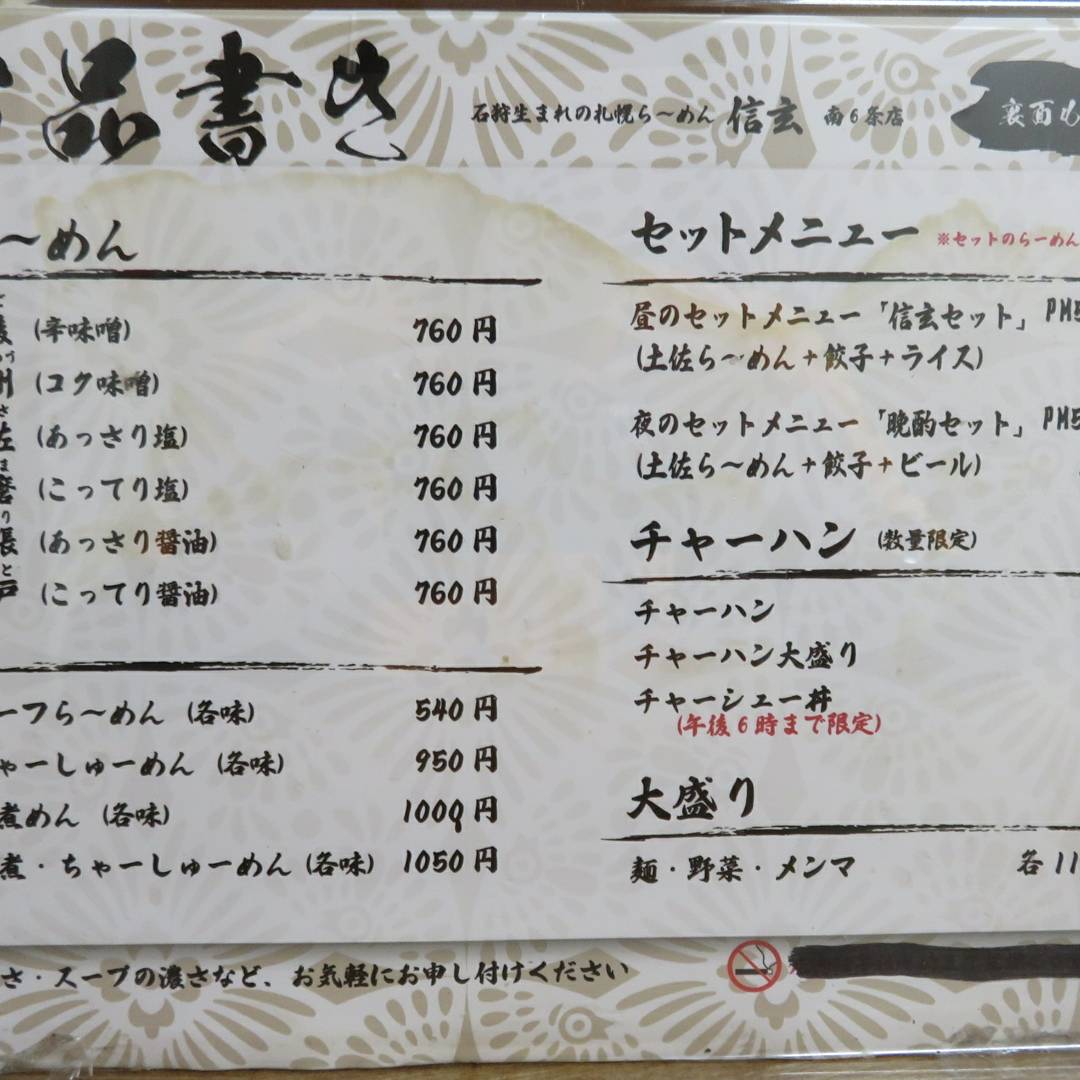 品書き
石狩生まれの札幌ら〜めん 信玄 南6条店
裏面も
〜めん
(辛味噌) 760円
州 (コク味噌) 760円
佐 (あっさり塩) 760円
(こってり塩) 760円
張 (あっさり醤油) 760円
戸 (こってり醤油) 760円
ーフら〜めん (各味) 540円
ゃーしゅーめん (各味) 950円
煮めん (各味) 1000円
煮・ちゃーしゅーめん (各味) 1050円
セットメニュー ※セットのらーめん
昼のセットメニュー「信玄セット」 PM5
(土佐ら〜めん+餃子+ライス)
夜のセットメニュー「晩酌セット」 PM5
(土佐ら〜めん+餃子+ビール)
チャーハン (数量限定)
チャーハン
チャーハン大盛り
チャーシュー丼
(午後6時まで限定)
大盛り
麺・野菜・メンマ 各11
さ・スープの濃さなど、お気軽にお申し付けください